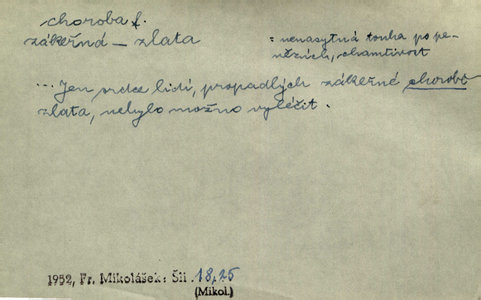 choroba f.
zákeřná – zlata
= nenasytná touha po pe-
nězích, chamtivost
... Jen srdce lidí, propadlých zákeřné chorobě
zlata, nebylo možno vyléčit.
1952, Fr. Mikolášek: Šli . 18,25
(Mikol.)